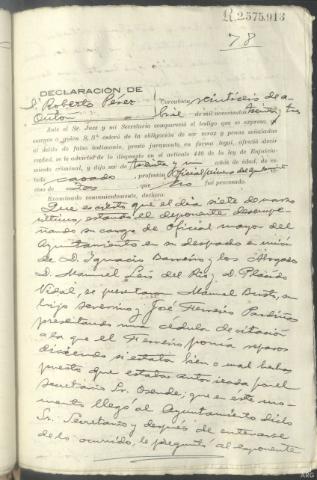 R.2575,913
78
DECLARACIÓN DE
D. Roberto Pérez
Outón
Corcubión veintiseis de a-
bril de mil novecientos treinta y tres
Ante el Sr. Juez y mi Secretaría compareció el testigo que se expresa,
a quien S. S.ª enteró de la obligación de ser veraz y penas señaladas
al delito de falso testimonio, prestó juramento, en forma legal, ofreció decir
verdad, se le advirtió lo dispuesto en el artículo 446 de la Ley de Enjuicia-
miento criminal, y dijo ser de treinta y un años de edad, de es-
tado casado, profesión Oficial primero del Ayunta-
que no fué procesado.
Examinado convenientemente, declara:
Que es cierto que el día siete de marzo
último, estando el deponente desempe-
ñando su cargo de Oficial mayor del
Ayuntamiento en su despacho en unión
de D. Ignacio Barreiro, y los Abogados
D. Manuel Leis del Río y D. Plácido
Vidal, se presentaron Manuel Busto, su
hijo Severino y José Ferreiro Pardiñas
presentando una cédula de citación
a la que el Ferreiro ponía reparos
diciendo si estaba bien o mal hecha
puesto que estaba autorizada por el
Secretario Sr. Osende; que en este mo-
mento llegó al Ayuntamiento dicho
Sr. Secretario y después de enterarse
de lo ocurrido, le preguntó al exponente
ARG